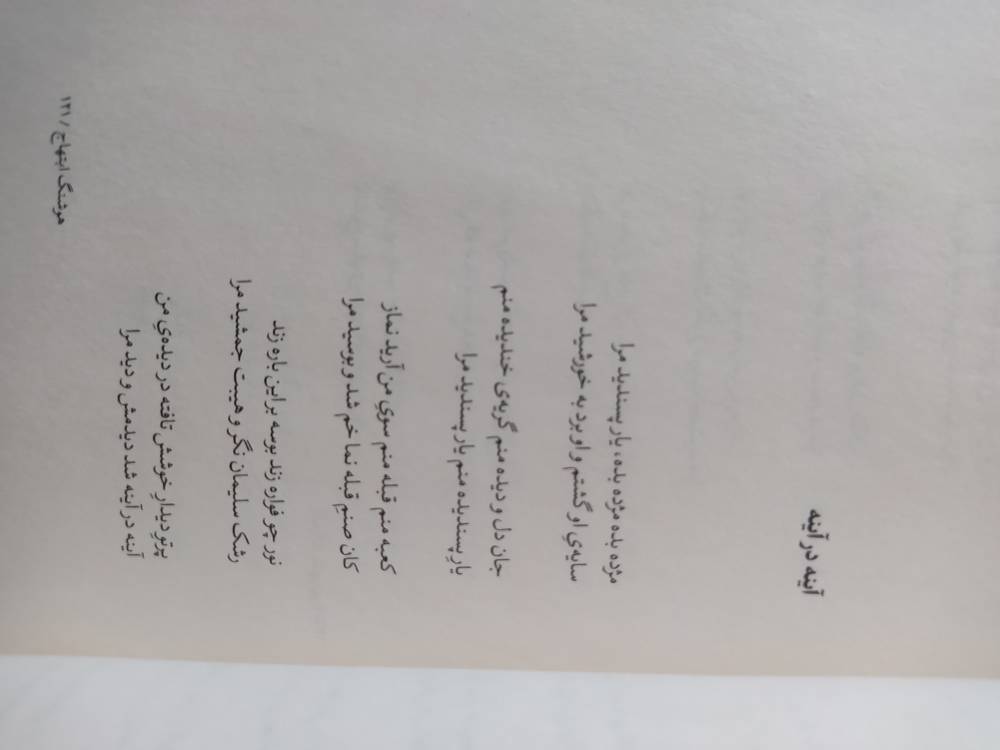 آینه در آینه
مژده بده مژده بده، یار پسندید مرا
سایه‌ی او گشتم و او برد به خورشید مرا
جان دل و دیده منم گریه‌ی خندیده منم
یارِ پسندیده منم یار پسندید مرا
کعبه منم قبله منم سوی من آرید نماز
کان صنمِ قبله نما خم شد و بوسید مرا
نور چو فواره زند بوسه بر این باره زند
رشک سلیمان نگر و هیبت جمشید مرا
پرتوِ دیدارِ خوشش تافته در دیده‌یِ من
آینه در آینه شد دیدمش و دید مرا
هوشنگ ابتهاج / ۱۲۱